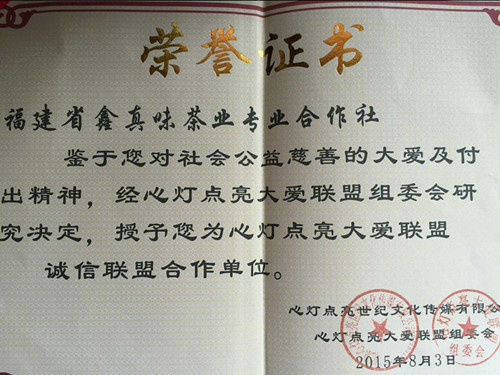 荣誉证书
福建省鑫真味茶业专业合作社
鉴于您对社会公益慈善的大爱及付
出精神，经心灯点亮大爱联盟组委会研
究决定，授予您为心灯点亮大爱联盟
诚信联盟合作单位。
心灯点亮世纪文化传媒有限公
心灯点亮大爱联盟组委会
2015年8月3日
组委会